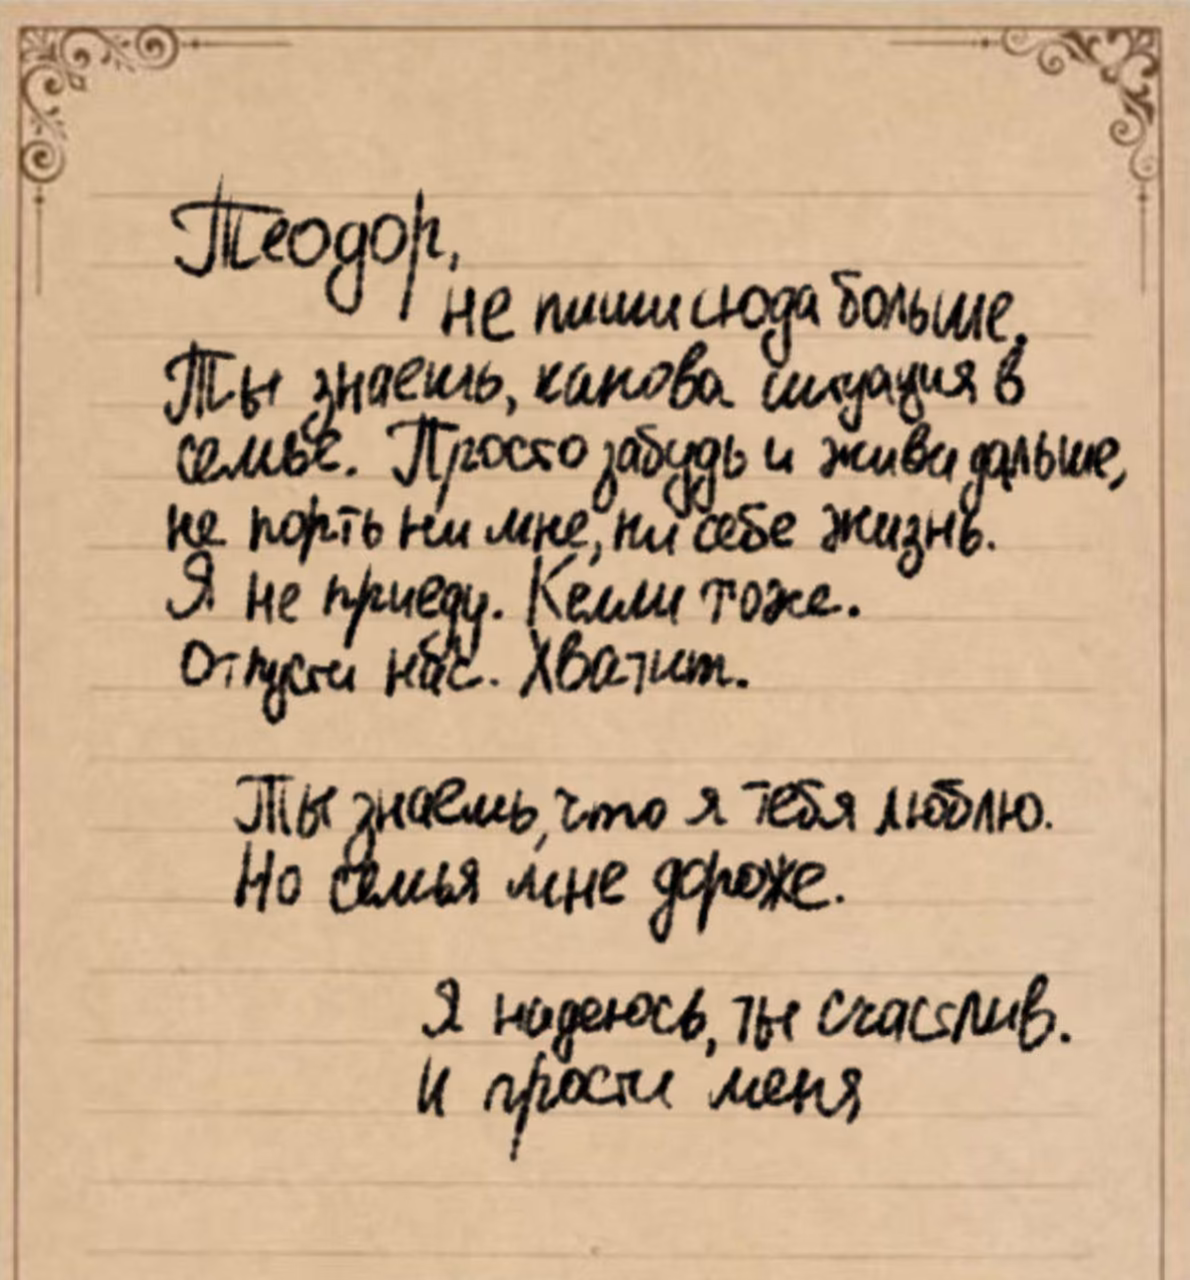 Теодор,
не пиши сюда больше.
Ты знаешь, какова ситуация в
семье. Просто забудь и живи дальше,
не порть ни мне, ни себе жизнь.
Я не приеду. Келли тоже.
Отпусти нас. Хватит.
Ты знаешь, что я тебя люблю.
Но семья мне дороже.
Я надеюсь, ты счастлив.
И прости меня